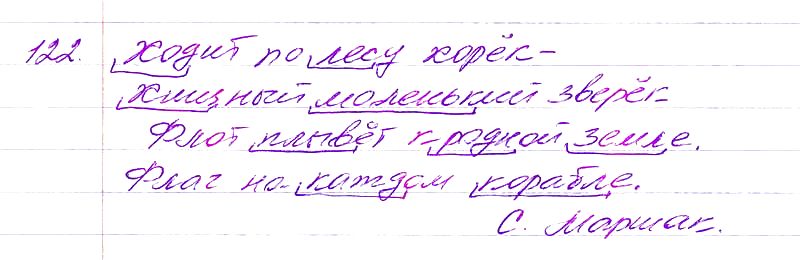 122. Ходит по лесу хорёк –
Хищный маленький зверёк.
Флот плывёт к родной земле.
Флаг на каждом корабле.
С. Маршак.